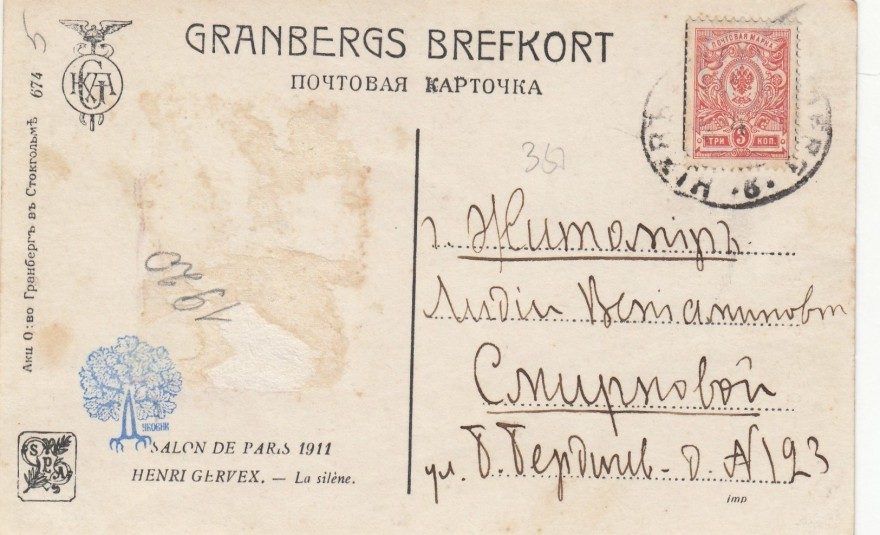 5
GRANBERGS BREFKORT
ПОЧТОВАЯ КАРТОЧКА
Акц О:во Гранбергъ въ Стокгольмѣ 674
ПОЧТОВАЯ МАРКА
3
ТРИ КОП.
г. Житомiръ
Лидiи Венiаминовнѣ
Смирновой
ул. Б. Бердич. д. № 123
1920
УКОБИК
SALON DE PARIS 1911
HENRI GERVEX. — La silène.
SPA
imp